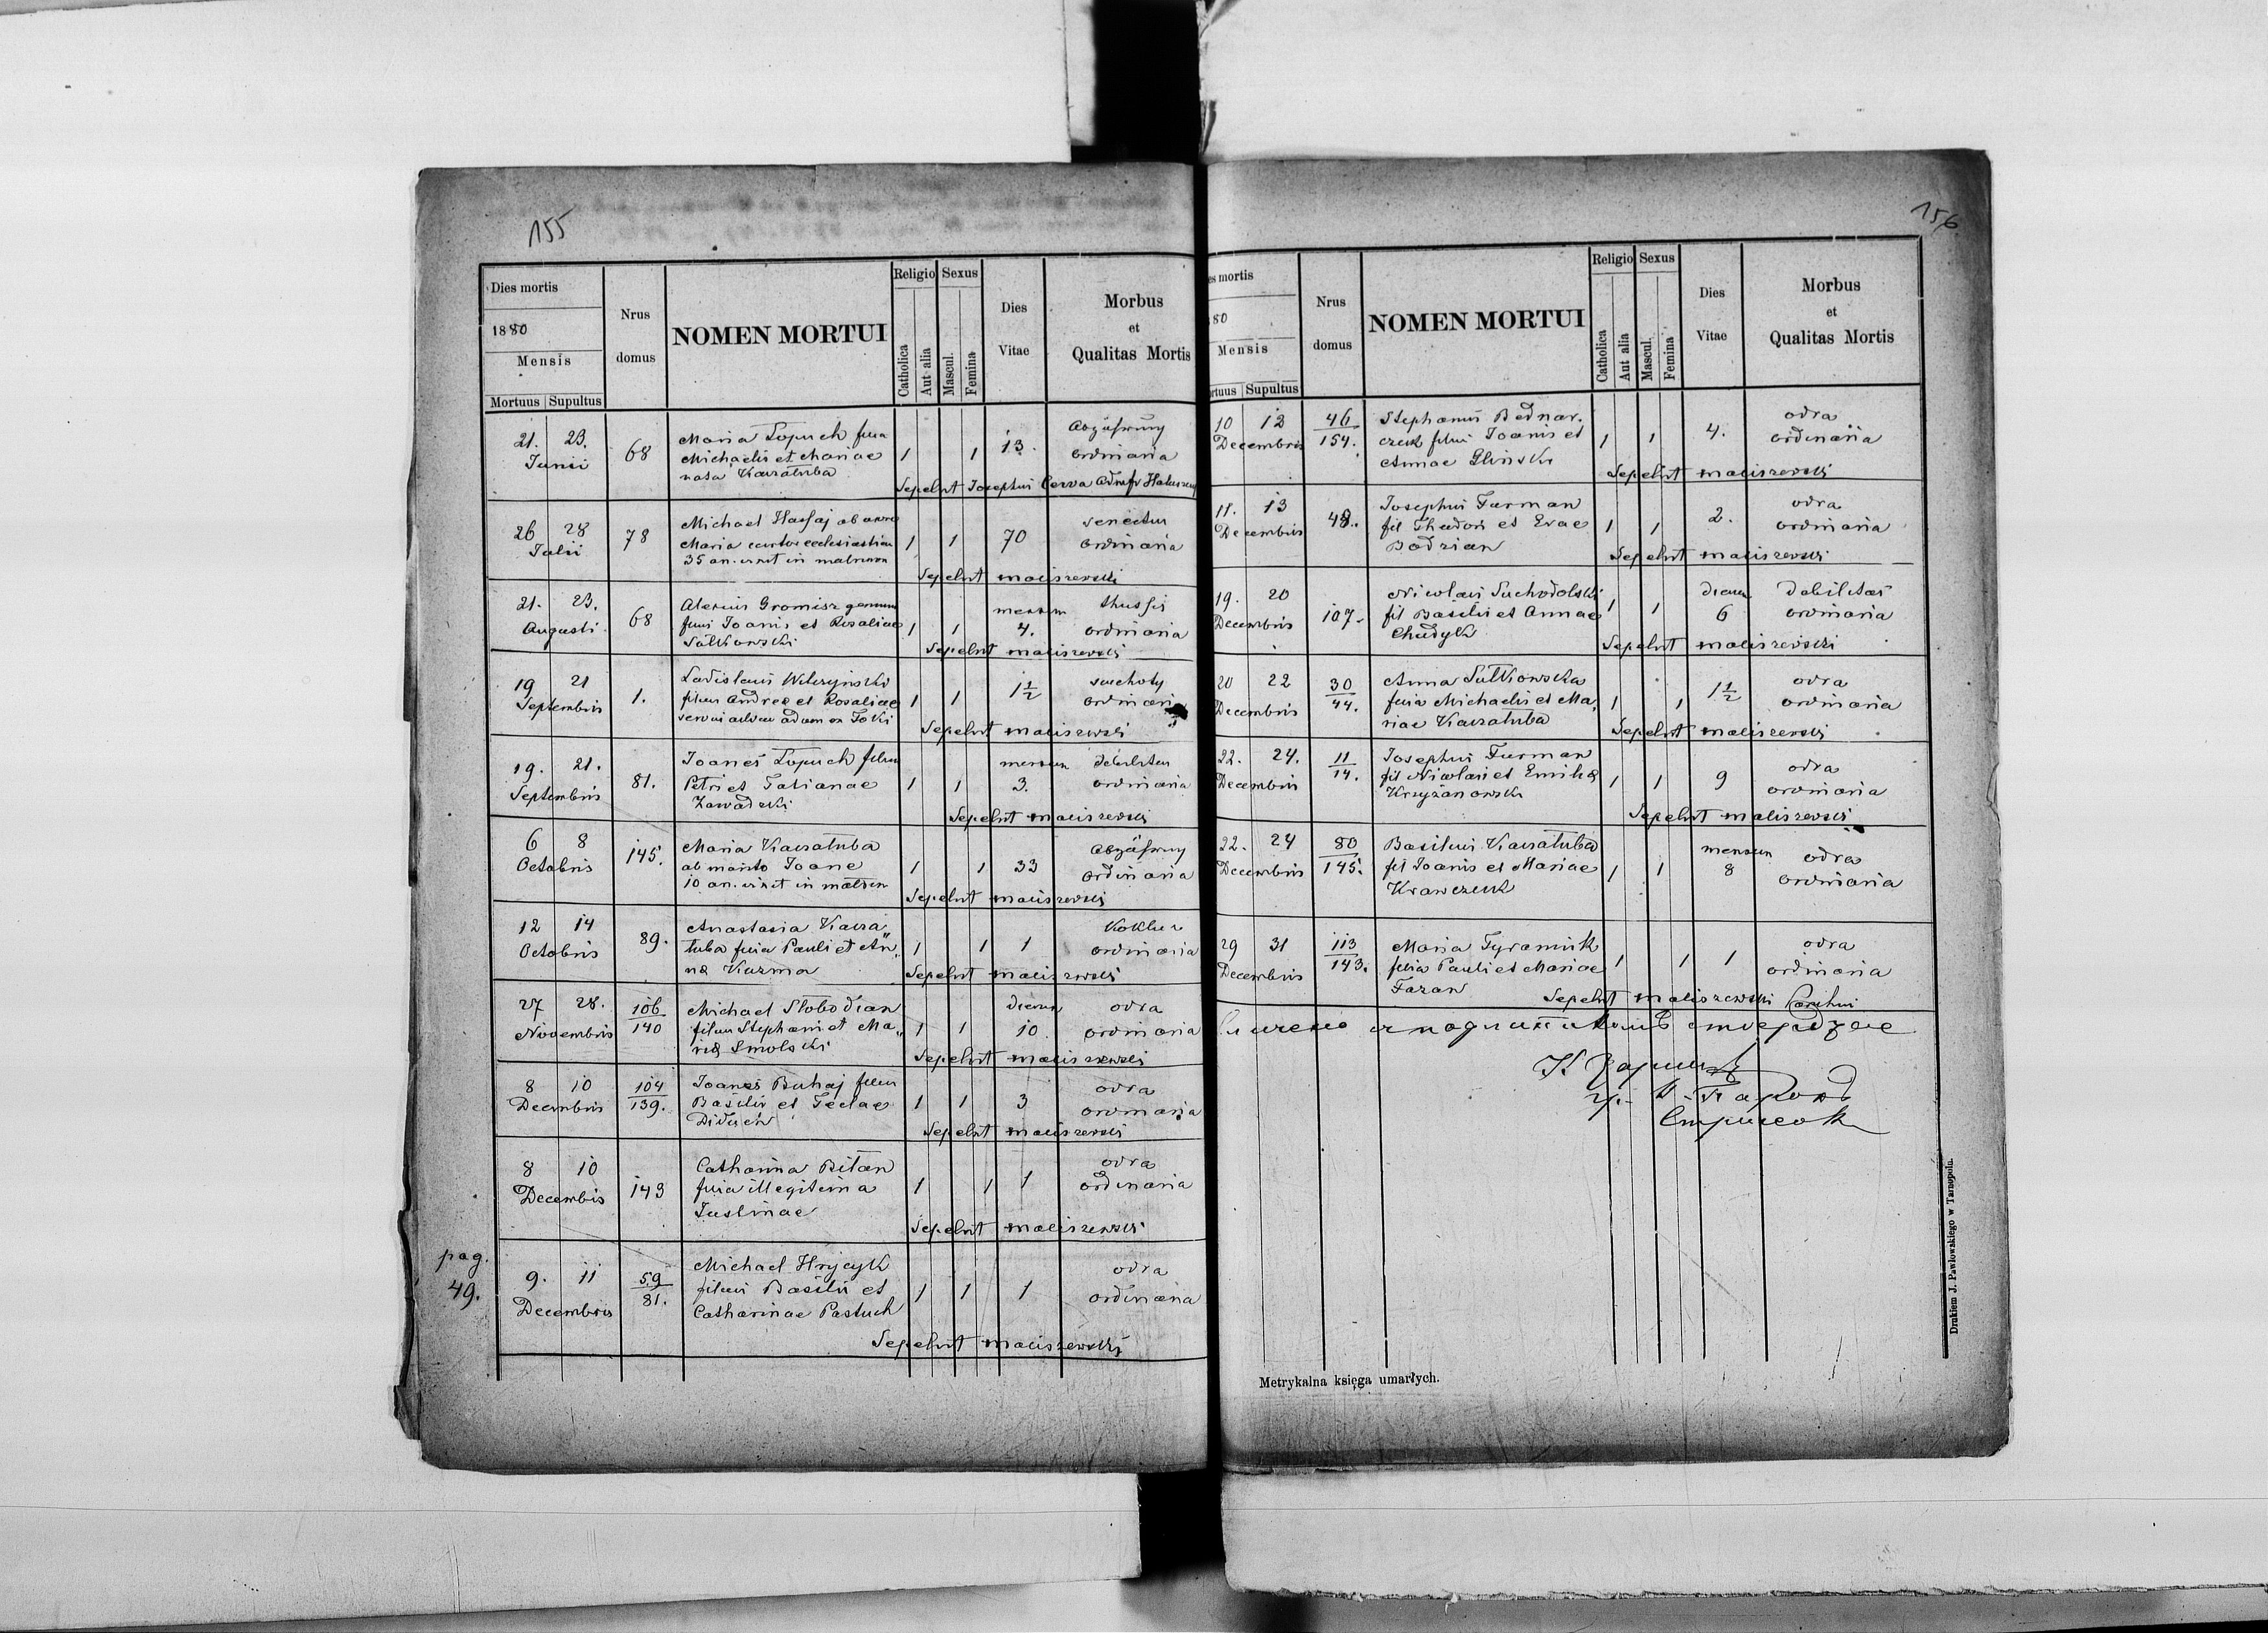 155
Dies mortis
1880
Mensis
Mortuus Supultus
Nrus domus
NOMEN MORTUI
Religio
Catholica
Aut alia
Sexus
Mascul.
Femina
Dies Vitae
Morbus et Qualitas Mortis
21. 23. Junii 68
Maria Łopuch filia
Michaelis et Mariae
nata Kawatuba
1 1 13. Abzährung ordinaria
Sepelivit Josephus Cerva
26 28 Julii 78
Michael Hassaj ab uxore
Maria cantor ecclesiasticus
35 an. vixit in matrimon
1 1 70 senectus ordinaria
Sepelivit Maliszewski
21. 23. Augusti 68
Alexius Gromisz
filius Joanis et Rosaliae
Sulkowski
1 1 mensum 4. thussis ordinaria
Sepelivit Maliszewski
19 21 Septembris 1.
Ladislaus Wilczynski
filius Andreæ et Rosaliae
1 1 1½ suchoty ordinaria
Sepelivit Maliszewski
19. 21. Septembris 81.
Joanes Łopuch filius
Petri et Tatianae
Zawadzki
1 1 mensum 3. debilitas ordinaria
Sepelivit Maliszewski
6 8 Octobris 145.
Maria Kawatuba
ab marito Joane
10 an. vixit in matrim
1 1 33 Abzährung ordinaria
Sepelivit Maliszewski
12 14 Octobris 89.
Anastasia Kawa„
tuba filia Pauli et An„
næ Kuzma
1 1 1 Koklusz ordinaria
Sepelivit Maliszewski
27 28. Novembris 106/140
Michael Slobodian
filius Stephani et Ma„
riæ Smolski
1 1 dierum 10. odra ordinaria
Sepelivit Maliszewski
8 10 Decembris 104/139.
Joanes Buhaj filius
Basilii et Teclae
Diduch
1 1 3 odra ordinaria
Sepelivit Maliszewski
8 10 Decembris 143
Catharina Bitan
filia illegitima
Justinae
1 1 1 odra ordinaria
Sepelivit Maliszewski
pag. 49.
9. 11 Decembris 59/81.
Michael Hrycyk
filius Basilii et
Catharinae Pastuch
1 1 1 odra ordinaria
Sepelivit Maliszewski
156
es mortis
80
Mensis
rtuus Supultus
Nrus domus
NOMEN MORTUI
Religio
Catholica
Aut alia
Sexus
Mascul.
Femina
Dies Vitae
Morbus et Qualitas Mortis
10 12 Decembris 46/154.
Stephanus Bednar.
czuk filius Joanis et
Annae Glinski
1 1 4. odra ordinaria
Sepelivit Maliszewski
11. 13 Decembris 48.
Josephus Furman
fil Theodori et Evae
Bodzian
1 1 2. odra ordinaria
Sepelivit Maliszewski
19. 20 Decembris 107.
Nicolaus Suchodolski
fil Basilii et Annae
Chudyk
1 1 dierum 6 debilitas ordinaria
Sepelivit Maliszewski
20 22 Decembris 30/44.
Anna Sulkowska
filia Michaelis et Ma„
riae Kawatuba
1 1 1½ odra ordinaria
Sepelivit Maliszewski
22. 24. Decembris 11/14.
Josephus Furman
fil Nicolai et Emiliæ
Krzyżanowski
1 1 9 odra ordinaria
Sepelivit Maliszewski
22. 24 Decembris 80/145.
Basilius Kawatuba
fil Joanis et Mariae
Krawczuk
1 1 mensum 8 odra ordinaria
29 31 Decembris 113/143.
Maria Tyramiik
filia Pauli et Mariae
Fazan
1 1 1 odra ordinaria
Sepelivit Maliszewski Parochus
Drukiem J. Pawłowskiego w Tarnopolu.
Metrykalna księga umarłych.